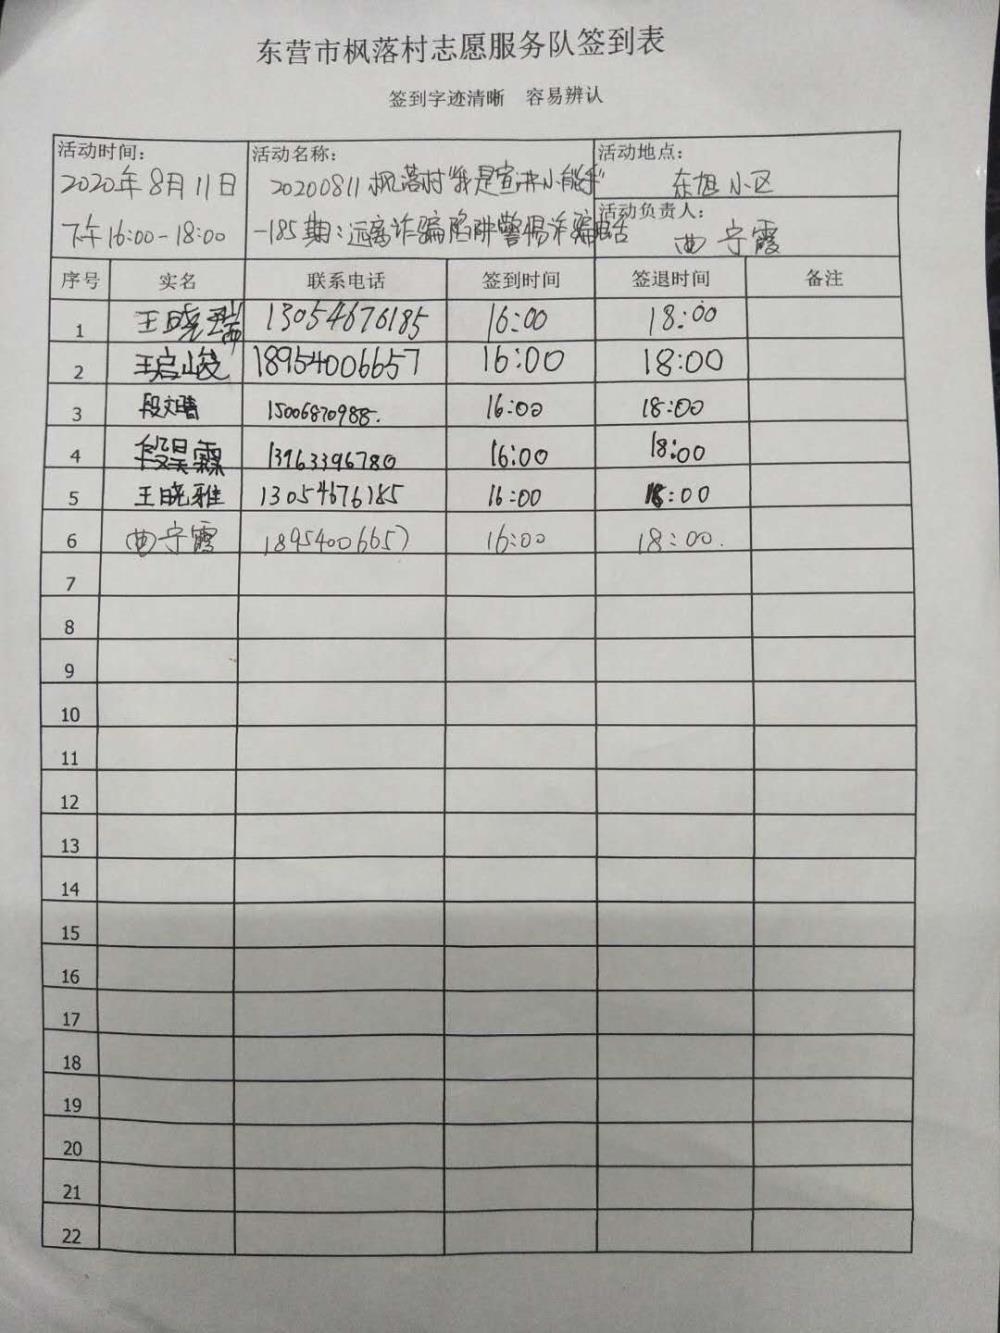 东营市枫落村志愿服务队签到表
签到字迹清晰 容易辨认
活动时间: 活动名称: 活动地点:
2020年8月11日 20200811枫落村"我是宣讲小能手" 东旭小区
活动负责人:
下午16:00-18:00 -185期:远离诈骗陷阱警惕诈骗电话 曲宁霞
序号 实名 联系电话 签到时间 签退时间 备注
1 王晓瑞 13054676185 16:00 18:00
2 王启峻 18954006657 16:00 18:00
3 段文晴 15006870988. 16:00 18:00
4 段昊霖 13963396780 16:00 18:00
5 王晓雅 13054676185 16:00 18:00
6 曲宁霞 18954006657 16:00 18:00.
7
8
9
10
11
12
13
14
15
16
17
18
19
20
21
22